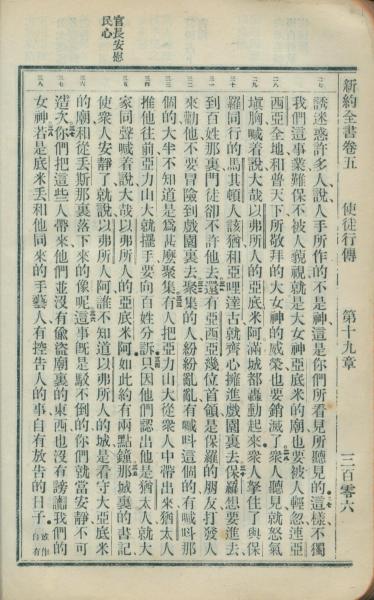 新約全書卷五 使徒行傳 第十九章 三百零六
官長安慰
民心
誘迷惑許多人說人手所作的不是神這是你們所看見所聽見的這樣不獨
我們這事業難保不被人藐視就是大女神亞底米的廟也要被人輕忽連亞
西亞全地和普天下所敬拜的大女神的威榮也要銷滅了衆人聽見就怒氣
塡胸喊着說大哉以弗所人的亞底米阿滿城都轟動起來衆人拏住了與保
羅同行的馬其頓人該猶和亞哩達古就齊心擁進戲園裏去保羅想要進去
到百姓那裏門徒卻不許他去還有亞西亞幾位首領是保羅的朋友打發人
來勸他不要冒險到戲園裏去聚集的人紛紛亂亂有喊呌這個的有喊呌那
個的大半不知道是爲甚麽聚集有人把亞力山大從衆人中帶出來猶太人
推他往前亞力山大就擺手要向百姓分訴只因他們認出他是猶太人就大
家同聲喊着說大哉以弗所人的亞底米阿如此約有兩點鐘那城裏的書記
使衆人安靜了就說以弗所人阿誰不知道以弗所人的城是看守大亞底米
的廟和從丟斯那裏落下來的像呢這事旣是駁不倒的你們就當安靜不可
造次你們把這些人帶來他們並沒有偸盜廟裏的東西也沒有謗讟我們的
女神若是底米丟和他同來的手藝人有控告人的事自有放告的日子